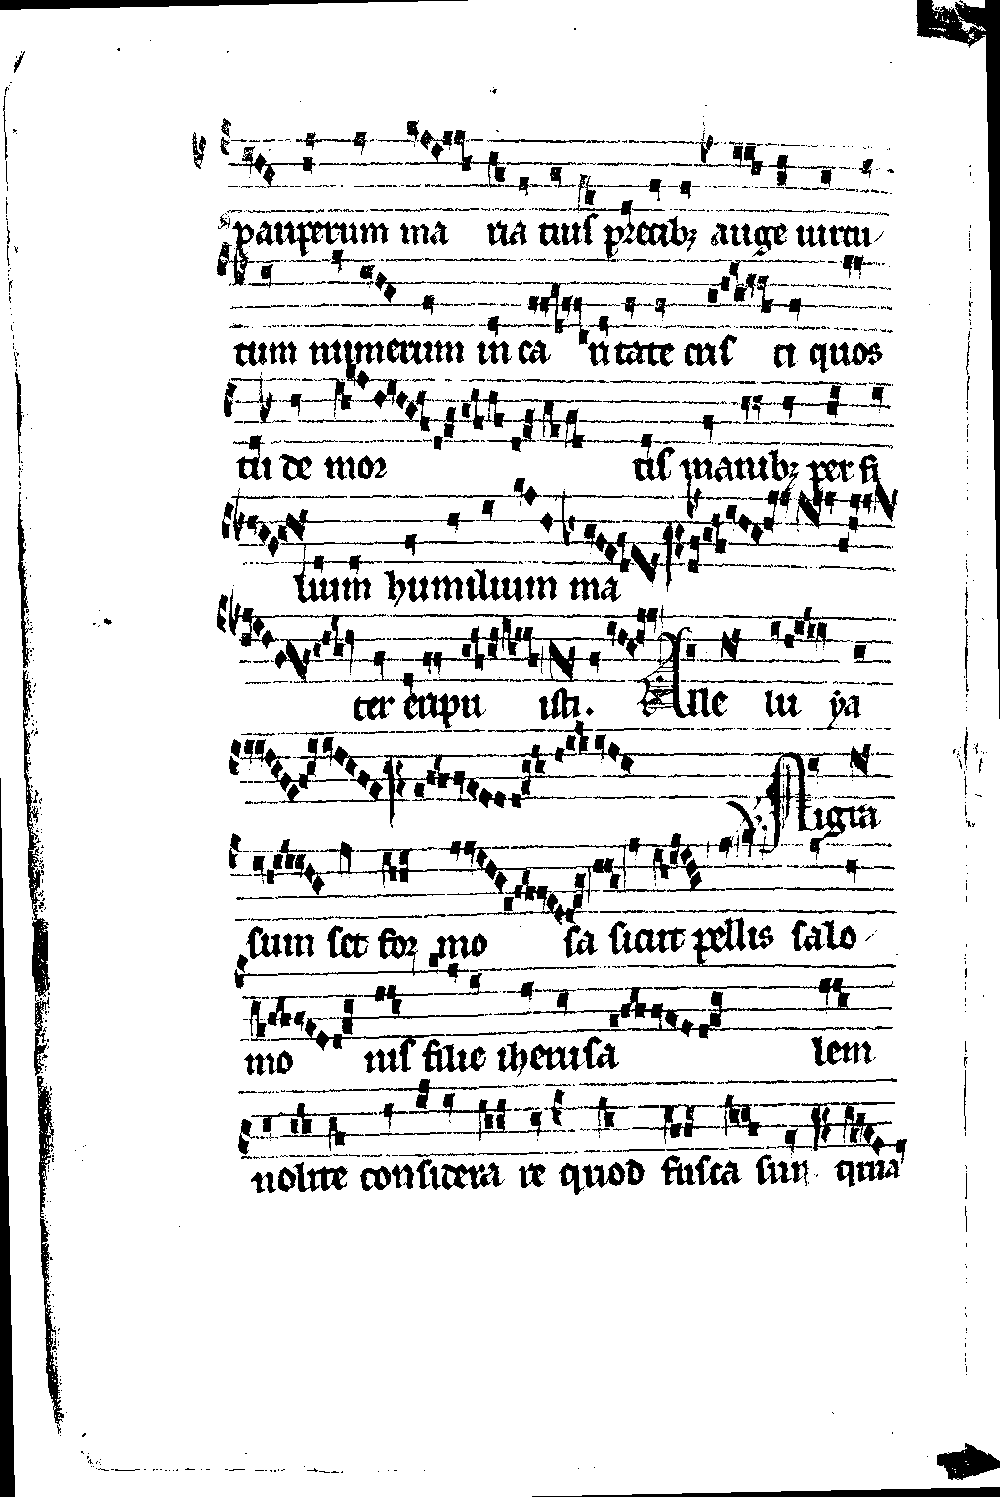 pauperum ma ria tuis precibꝫ auge uirtu
tum numerum in ca ritate cris ti quos
tu de mor tis manibꝫ per fi
lium humilium ma
ter eripu isti. Alle lu ya
Nigra
sum set for mo sa sicut pellis salo
mo nis filie iherusa lem
nolite considera re quod fusca sum quia